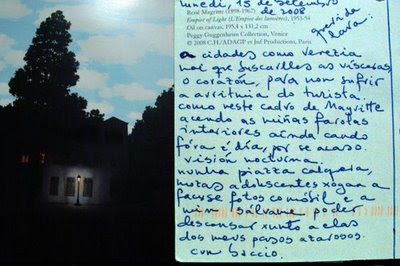 lunedì, 15 de setembro
de 2008
querida
Lara:
René Magritte (1898-1967)
Empire of Light (L'Empire des lumières), 1953-54
Oil on canvas, 195.4 x 131.2 cm
Peggy Guggenheim Collection, Venice
© 2008 C.H./ADAGP et Jnf Productions, Paris
a cidades como venezia
hai que buscarlles as vísceras
o corazón, para non sufrir
a arritmia do turista
como neste cadro de Magritte
acendo as miñas farolas
interiores aínda cando
fóra é día, por se acaso.
visión nocturna.
nunha piazza calquera,
motas adolescentes xogan a
facerse fotos co móbil e a
min bástame poder
descansar xunto a elas
dos meus pasos azarosos.
cun baccio.